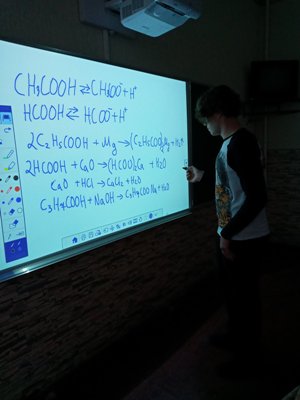 CH₃COOH ⇄ CH₃COO⁻ + H⁺
HCOOH ⇄ HCOO⁻ + H⁺
2C₂H₅COOH + Mg → (C₂H₅COO)₂Mg + H₂
2HCOOH + CaO → (HCOO)₂Ca + H₂O
CaO + HCl → CaCl₂ + H₂O
COOH + NaOH → COONa + H₂O